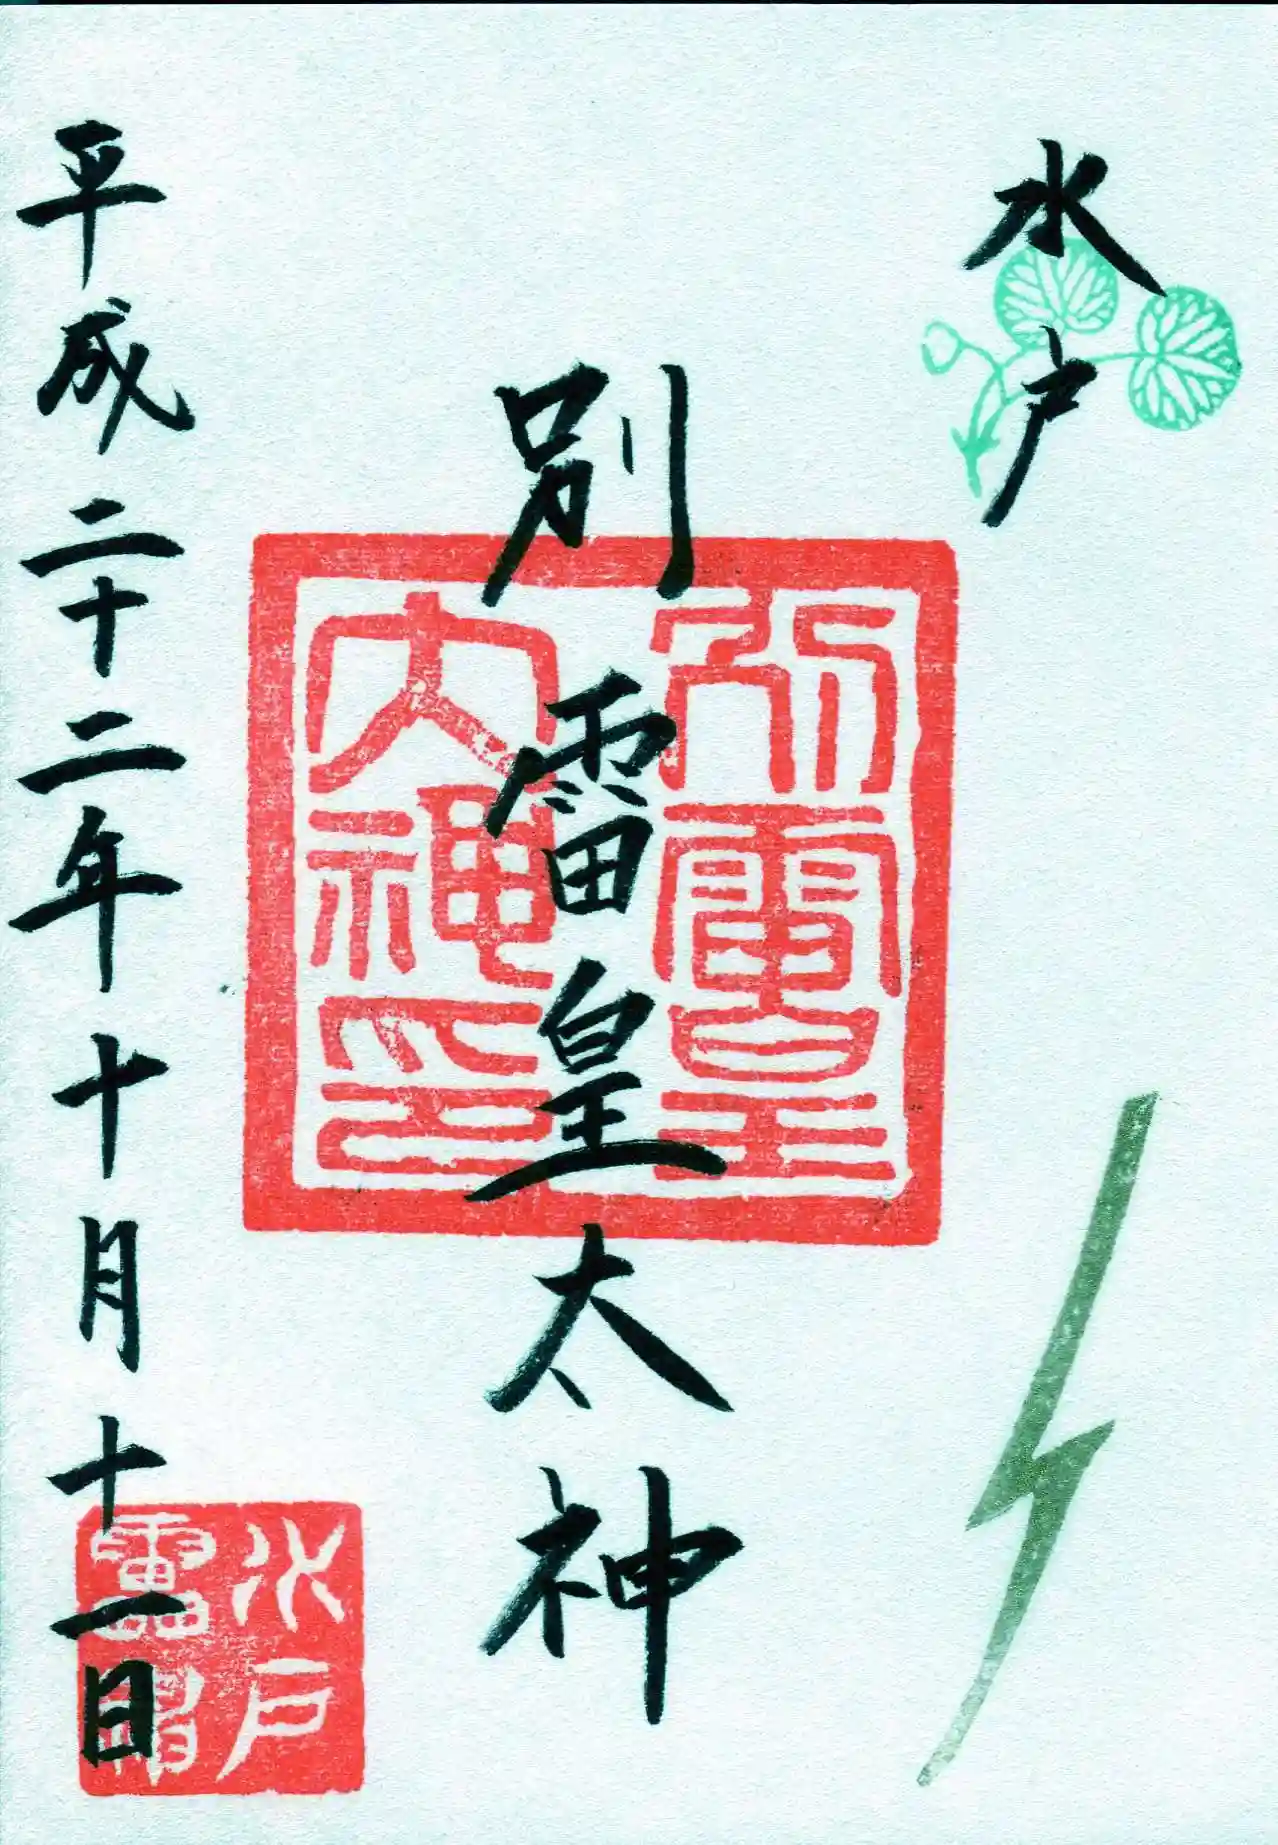 水戸
別雷皇太神
別雷皇大神印
平成二十二年十月十一日
水戸雷神